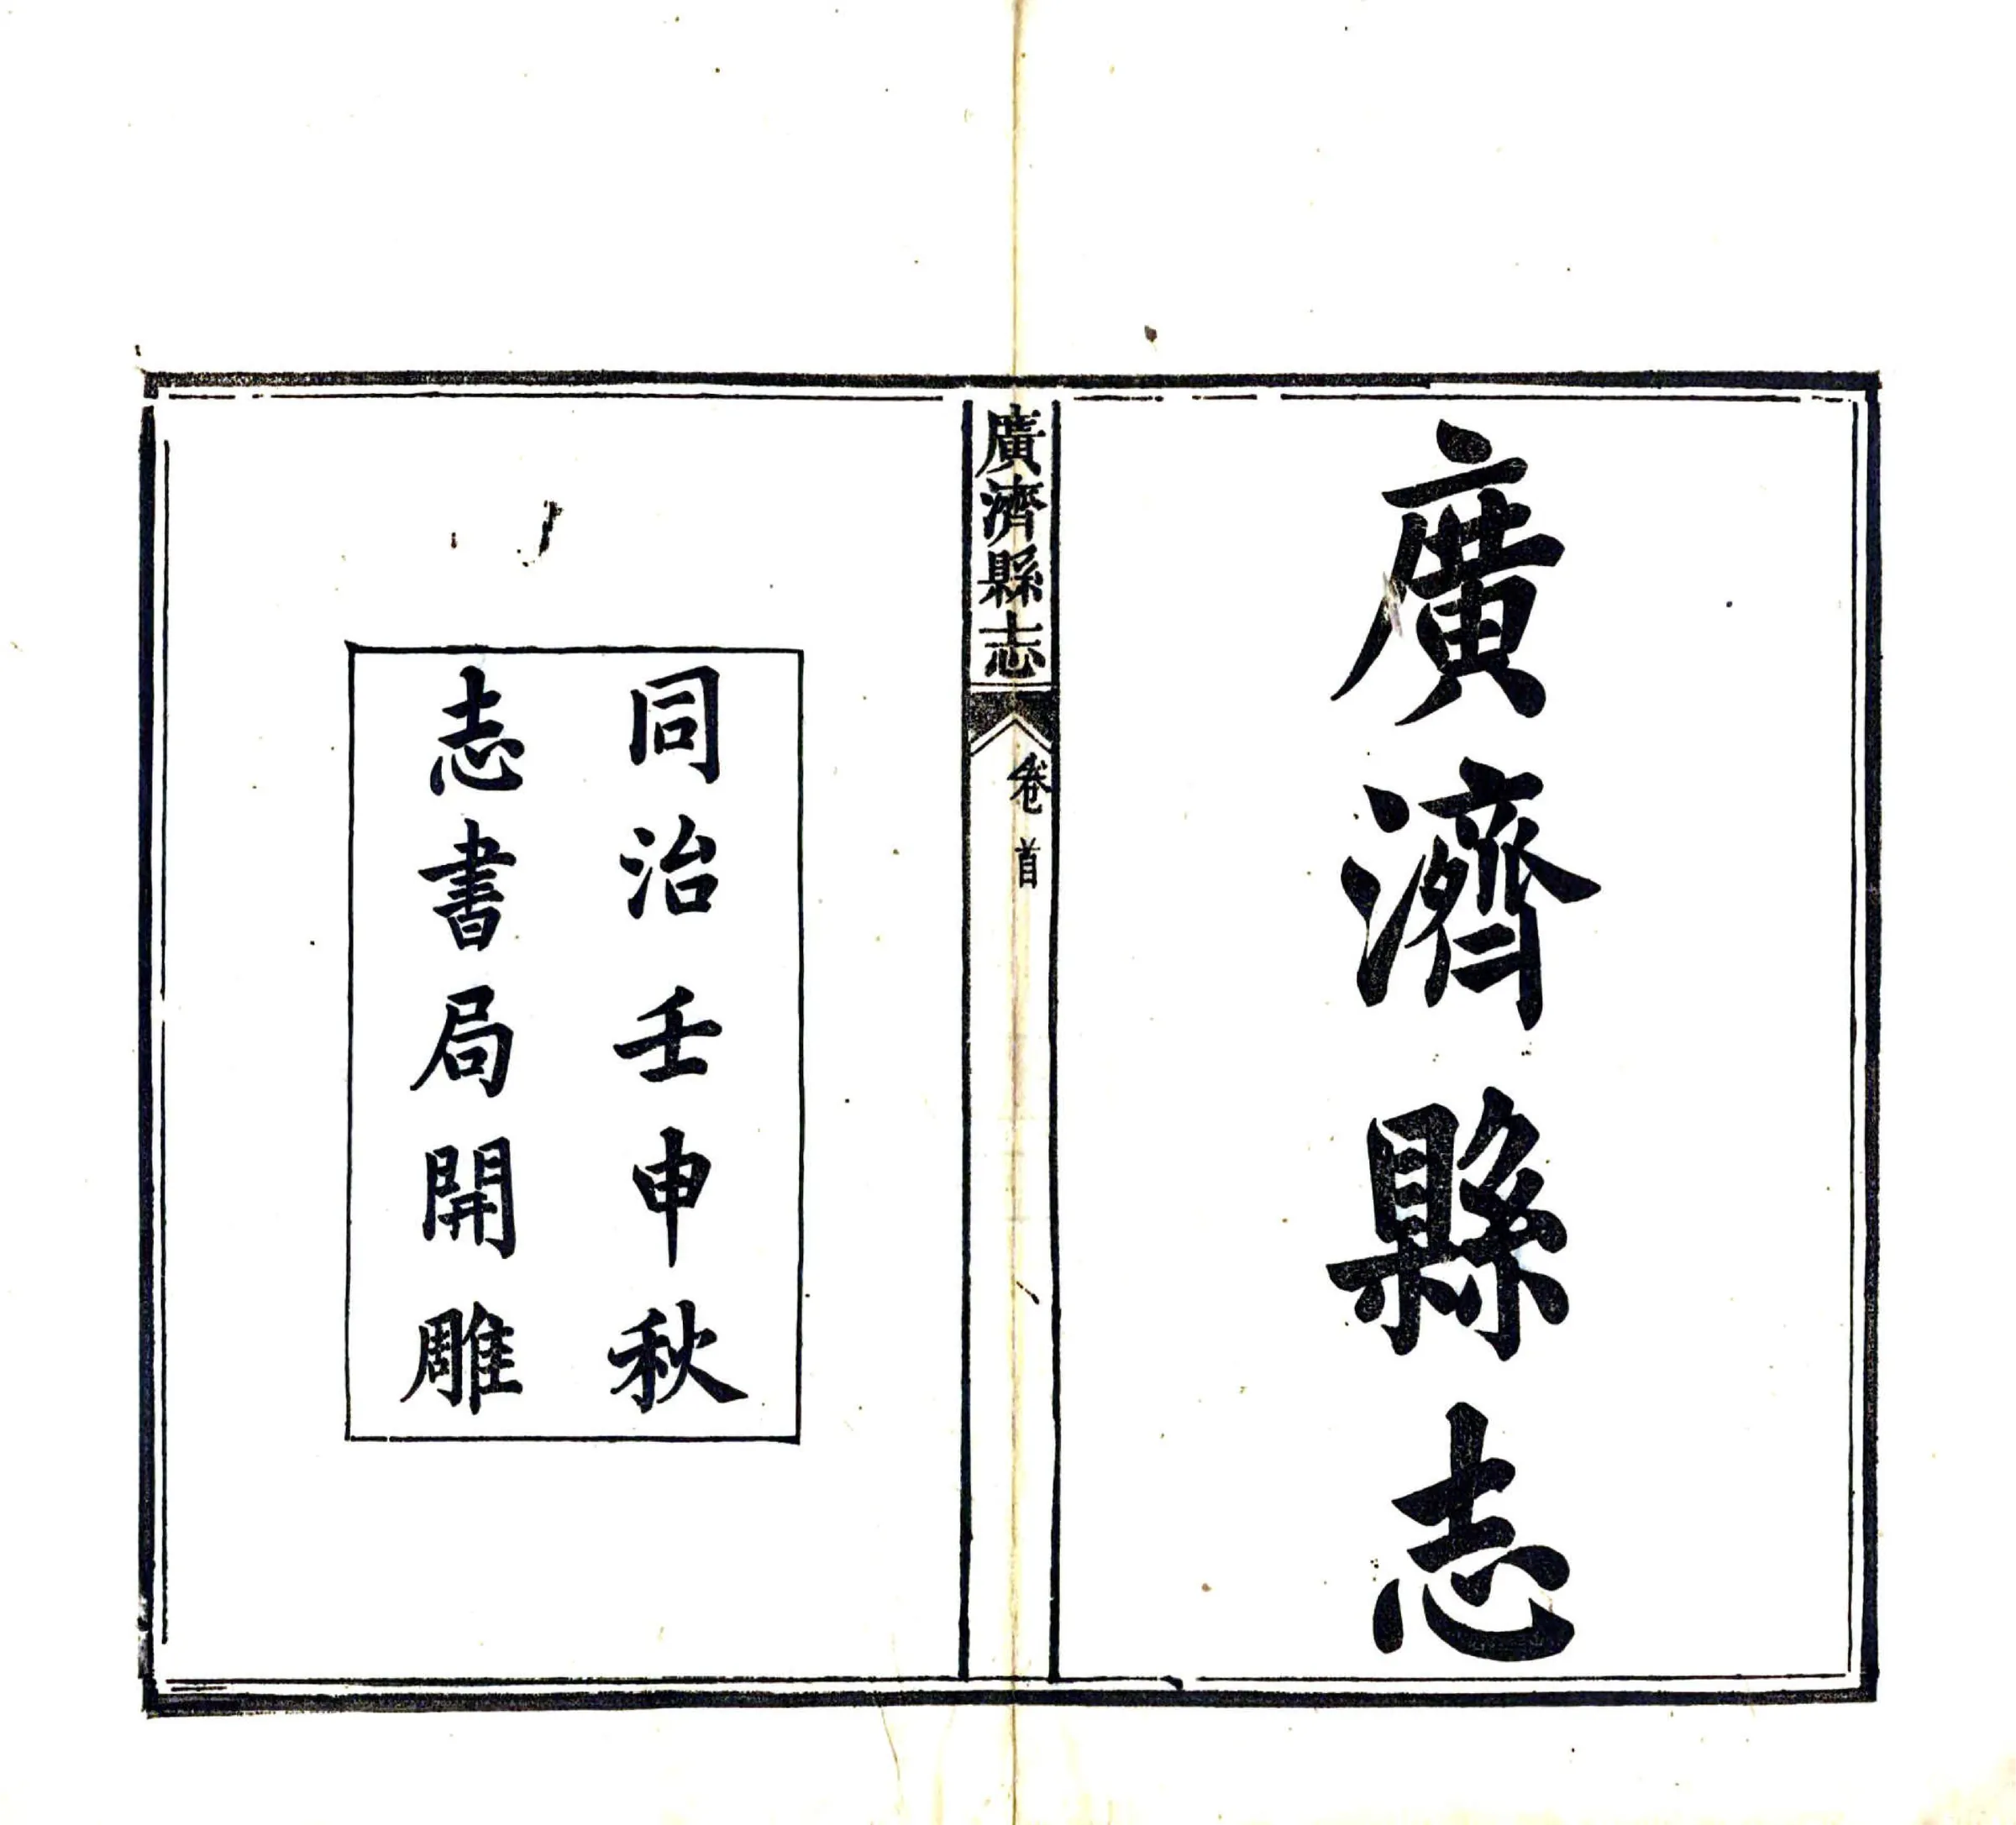 廣濟縣志
廣濟縣志
卷首
同治壬申秋
志書局開雕